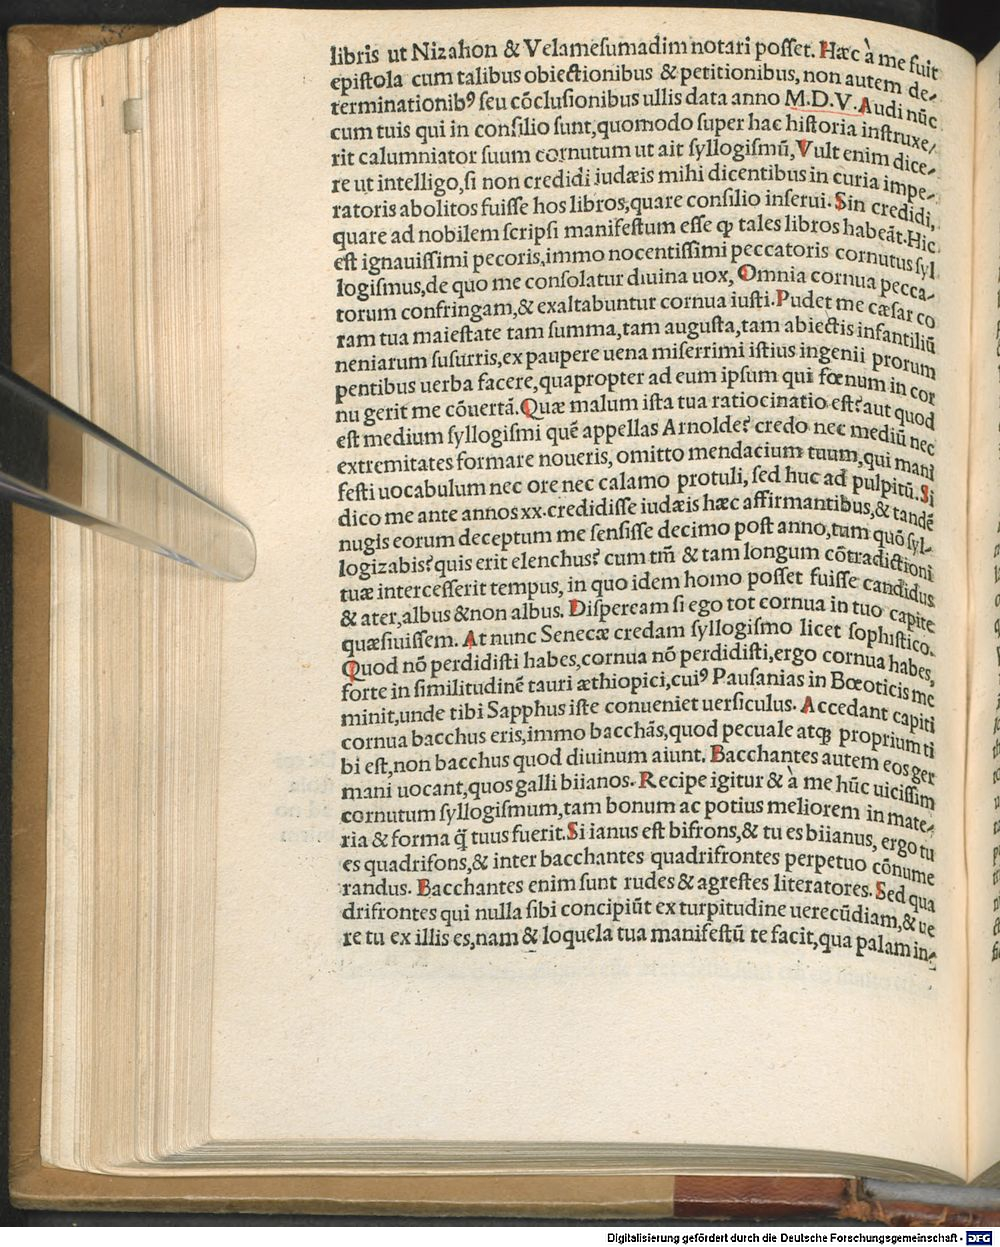 libris ut Nizahon & Velamesumadim notari posset. Hæc à me fuit
epistola cum talibus obiectionibus & petitionibus, non autem de⸗
terminationibꝰ seu cõclusionibus ullis data anno M.D.V. Audi nũc
cum tuis qui in consilio sunt, quomodo super hac historia instruxe⸗
rit calumniator suum cornutum ut ait syllogismũ, Vult enim dice⸗
re ut intelligo, si non credidi iudæis mihi dicentibus in curia impe⸗
ratoris abolitos fuisse hos libros, quare consilio inserui. Sin credidi,
quare ad nobilem scripsi manifestum esse ꝙ tales libros habeãt. Hic
est ignauissimi pecoris, immo nocentissimi peccatoris cornutus syl
logismus, de quo me consolatur diuina uox, Omnia cornua pecca⸗
torum confringam, & exaltabuntur cornua iusti. Pudet me cæsar co
ram tua maiestate tam summa, tam augusta, tam abiectis infantiliũ
neniarum susurris, ex paupere uena miserrimi istius ingenii prorum
pentibus uerba facere, quapropter ad eum ipsum qui fœnum in cor
nu gerit me cõuertã. Quæ malum ista tua ratiocinatio est? aut quod
est medium syllogismi quẽ appellas Arnolde? credo nec mediũ nec
extremitates formare noueris, omitto mendacium tuum, qui mani
festi uocabulum nec ore nec calamo protuli, sed huc ad pulpitũ. Si
dico me ante annos xx. credidisse iudæis hæc affirmantibus, & tandẽ
nugis eorum deceptum me sensisse decimo post anno, tum quõ syl⸗
logizabis? quis erit elenchus? cum tm̃ & tam longum cõtradictioni
tuæ intercesserit tempus, in quo idem homo posset fuisse candidus
& ater, albus & non albus. Dispeream si ego tot cornua in tuo capite
quæsiuissem. At nunc Senecæ credam syllogismo licet sophistico.
Quod nõ perdidisti habes, cornua nõ perdidisti, ergo cornua habes,
forte in similitudinẽ tauri æthiopici, cuiꝰ Pausanias in Bœoticis me
minit, unde tibi Sapphus iste conueniet uersiculus. Accedant capiti
cornua bacchus eris, immo bacchãs, quod pecuale atqꝫ proprium ti
bi est, non bacchus quod diuinum aiunt. Bacchantes autem eos ger
mani uocant, quos galli biianos. Recipe igitur & à me hũc uicissim
cornutum syllogismum, tam bonum ac potius meliorem in mate⸗
ria & forma q̃ tuus fuerit. Si ianus est bifrons, & tu es biianus, ergo tu
es quadrifons, & inter bacchantes quadrifrontes perpetuo cõnume
randus. Bacchantes enim sunt rudes & agrestes literatores. Sed qua
drifrontes qui nulla sibi concipiũt ex turpitudine uerecũdiam, & ue
re tu ex illis es, nam & loquela tua manifestũ te facit, qua palam in⸗
Digitalisierung gefördert durch die Deutsche Forschungsgemeinschaft - DFG